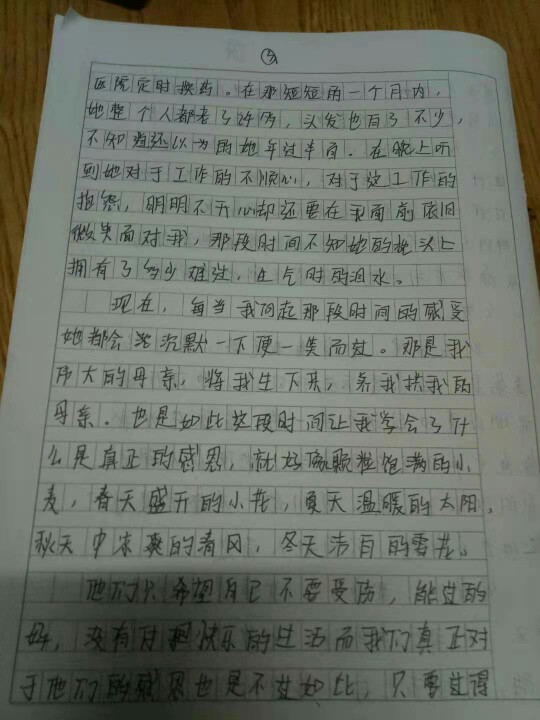 ③
医院定时换药。在那短短的一个月内，
她整个人都老了许多，头发也白了不少，
不知道还以为的她年过半百。在晚上听
到她对于工作的不顺心，对于这工作的
抱怨，明明不开心却还要在我面前依旧
微笑面对我，那段时间不知她的枕头上
拥有了多少难过，生气时的泪水。
现在，每当我问起那段时间的感受
她都会沉默一下便一笑而过。那是我
伟大的母亲，将我生下来，养我扶我的
母亲。也是如此这段时间让我学会了什
么是真正的感恩，就好像颗粒饱满的小
麦，春天盛开的小花，夏天温暖的太阳，
秋天中凉爽的清风，冬天洁白的雪花。
他们只希望自己不要受伤，能过的
好，没有过把快乐的生活而我们真正对
于他们的感恩也是不过如此，只要过得